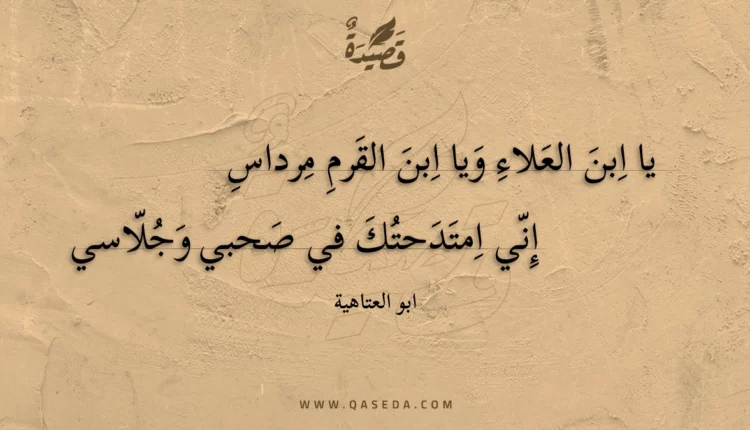 قَصِيدَةٌ
يا اِبنَ العَلاءِ وَيا اِبنَ القَرمِ مِرداسِ
إِنّي اِمتَدَحتُكَ في صَحبي وَجُلّاسي
ابو العتاهية
WWW.QASEDA.COM